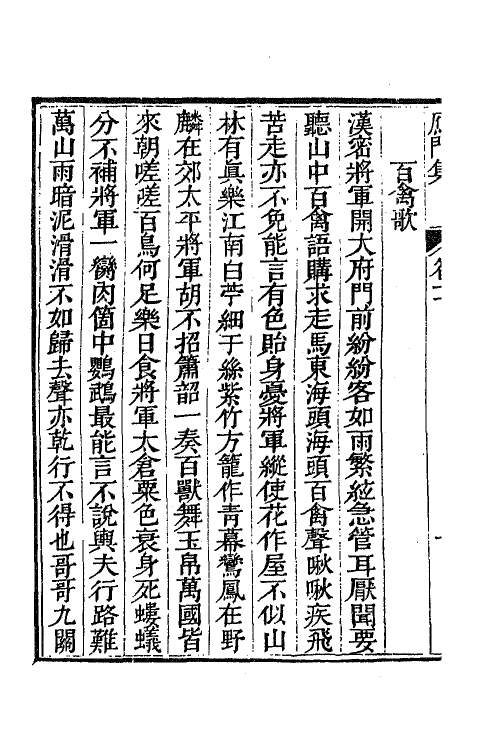 百禽歌
漢宻將軍開大府門前紛紛客如雨繁絃急管耳厭聞要
聽山中百禽語購求走馬東海頭海頭百禽聲啾啾疾飛
苦走亦不免能言有色貽身憂將軍縱使花作屋不似山
林有真樂江南白苧細于絲紫竹方籠作青幕鸞鳳在野
麟在郊太平將軍胡不招簫韶一奏百獸舞玉帛萬國皆
來朝嗟嗟百鳥何足樂日食將軍太倉粟色衰身死螻蟻
分不補將軍一臠肉箇中鸚鵡最能言不說輿夫行路難
萬山雨暗泥滑滑不如歸去聲亦乾行不得也哥哥九關